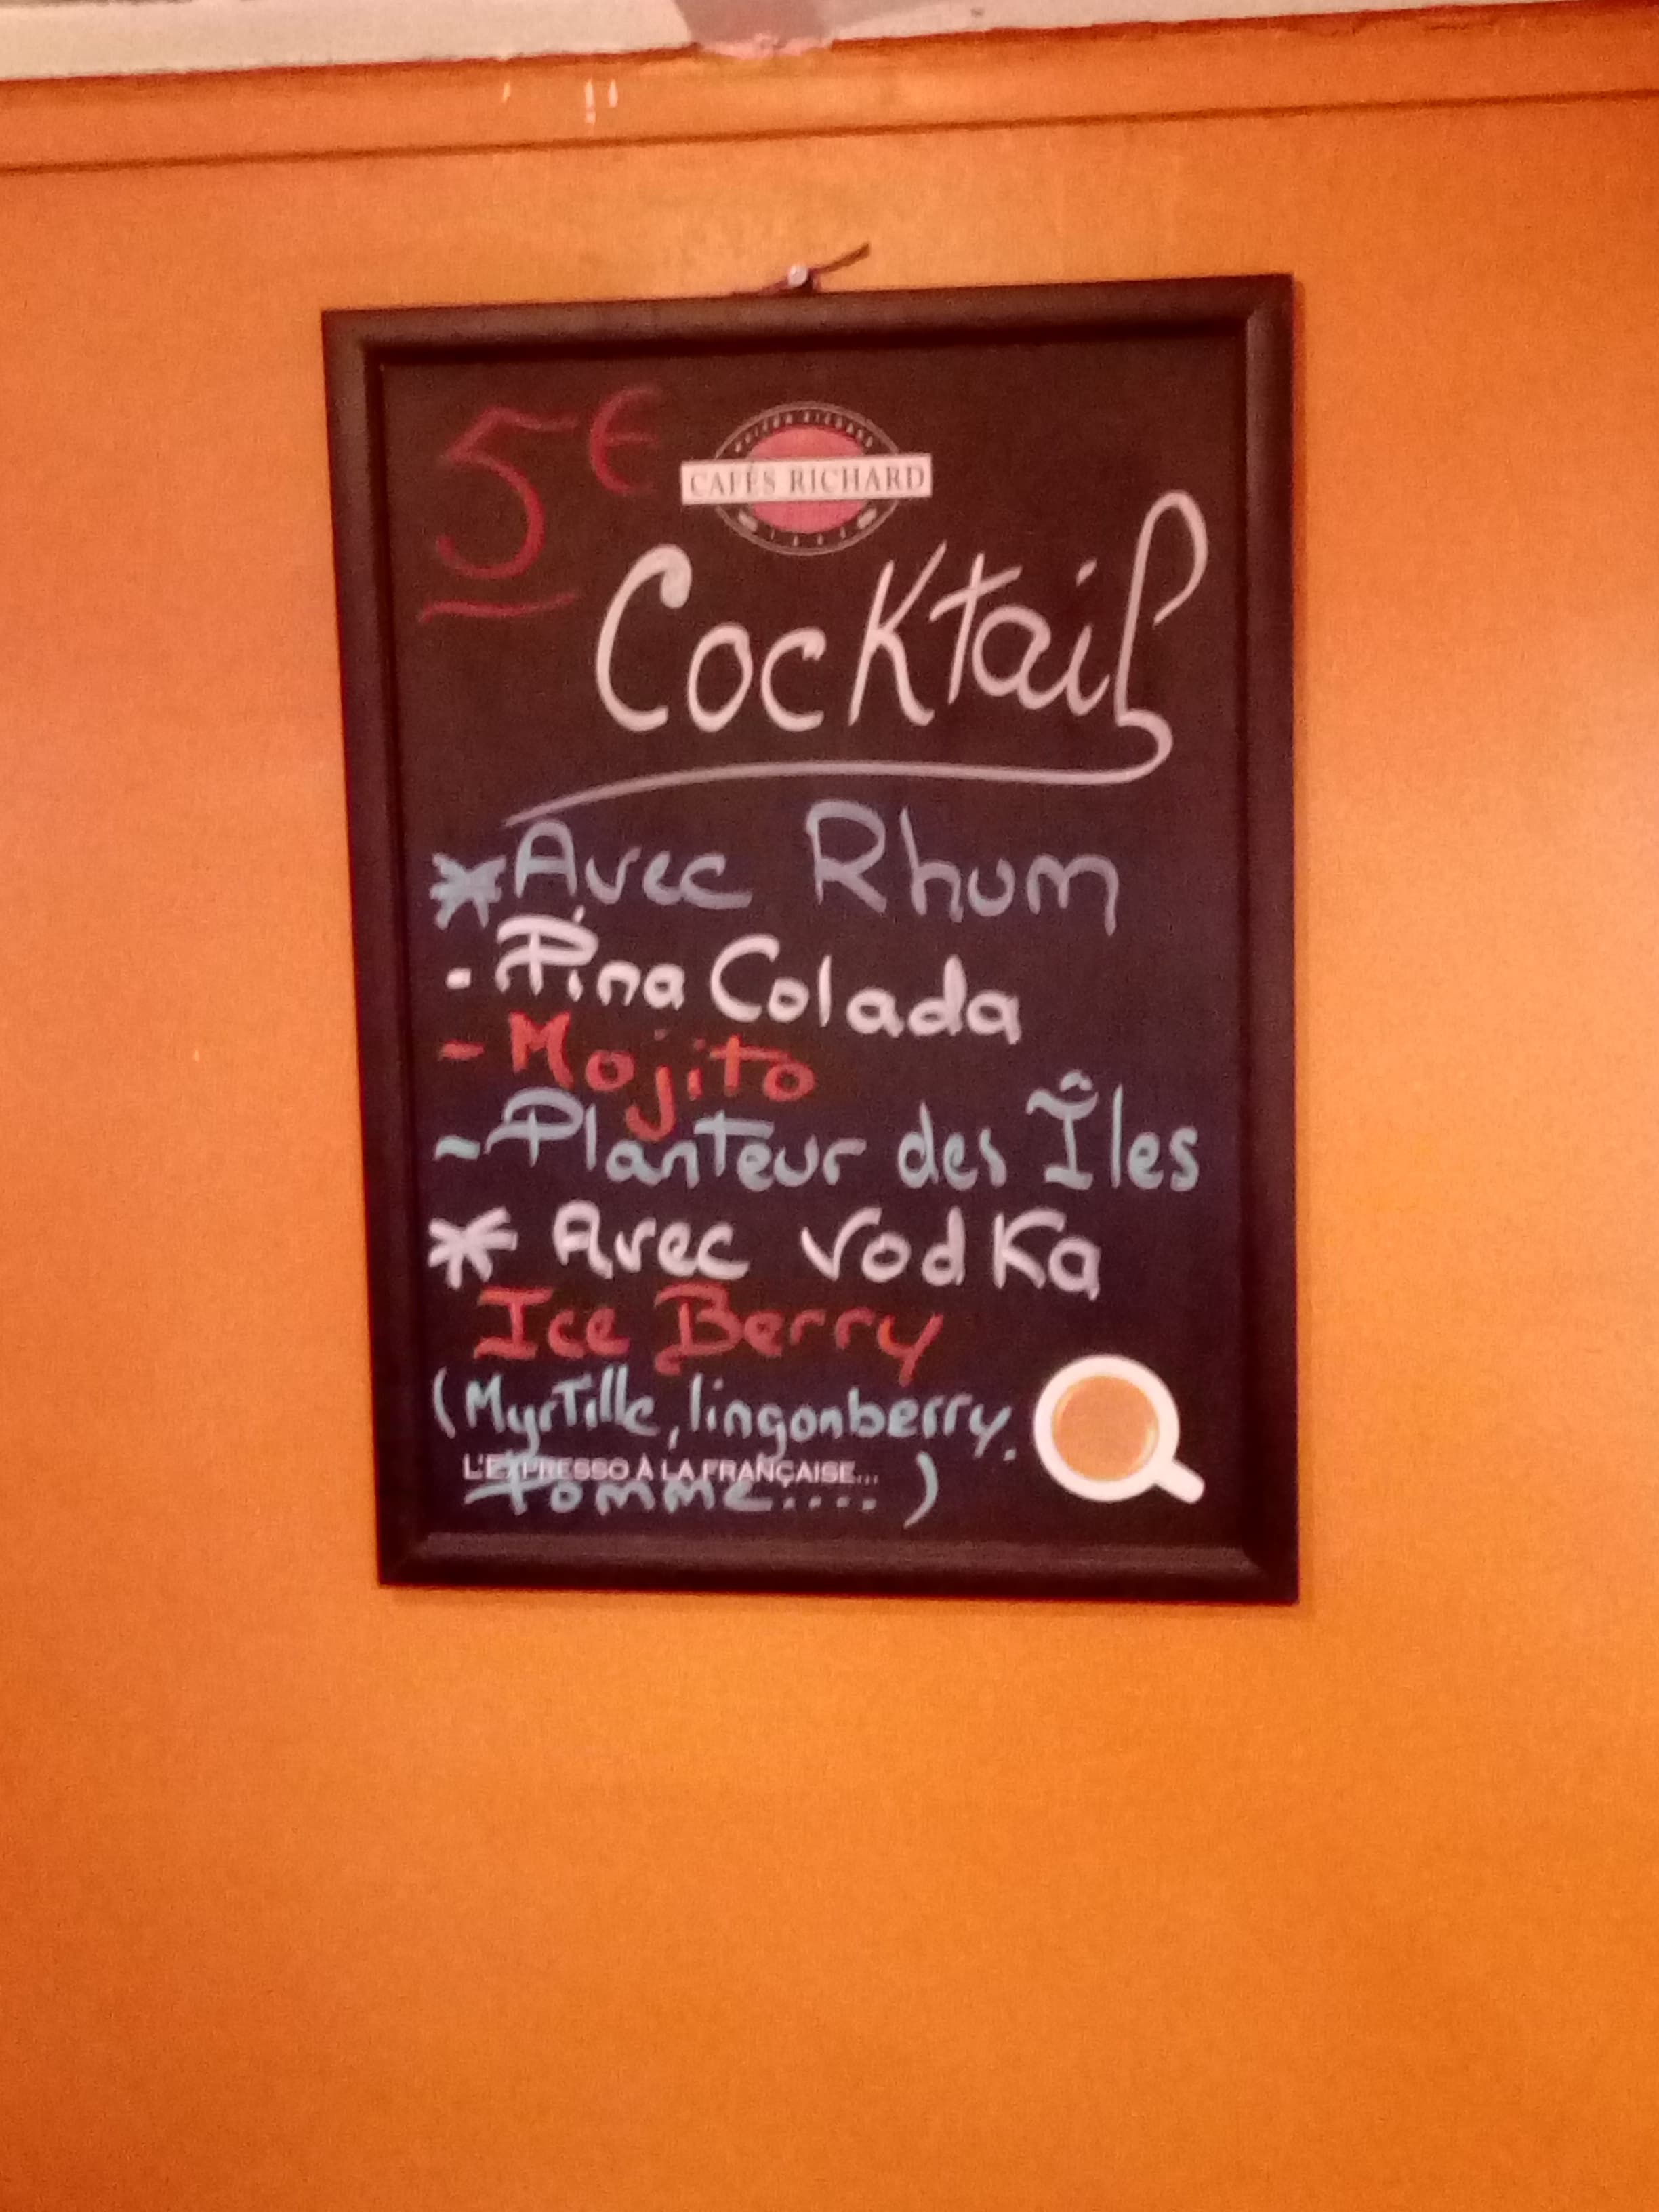 5€
MAISON RICHARD
CAFÉS RICHARD
1892
Cocktail
* Avec Rhum
- Pina Colada
- Mojito
- Planteur des Îles
* Avec Vodka
Ice Berry
(Myrtille, lingonberry.
L'EXPRESSO À LA FRANÇAISE...
Pomme.... )